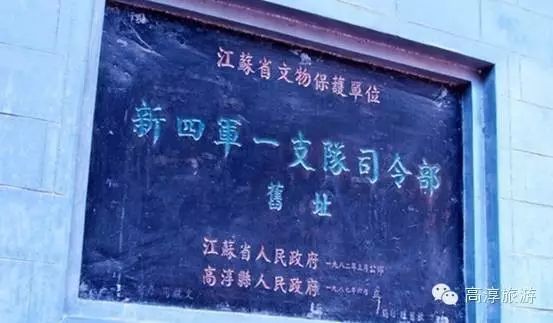 江蘇省文物保護單位
新四軍一支隊司令部
舊址
江蘇省人民政府 一九八二年三月公佈
高淳縣人民政府 一九八七年
高淳旅游